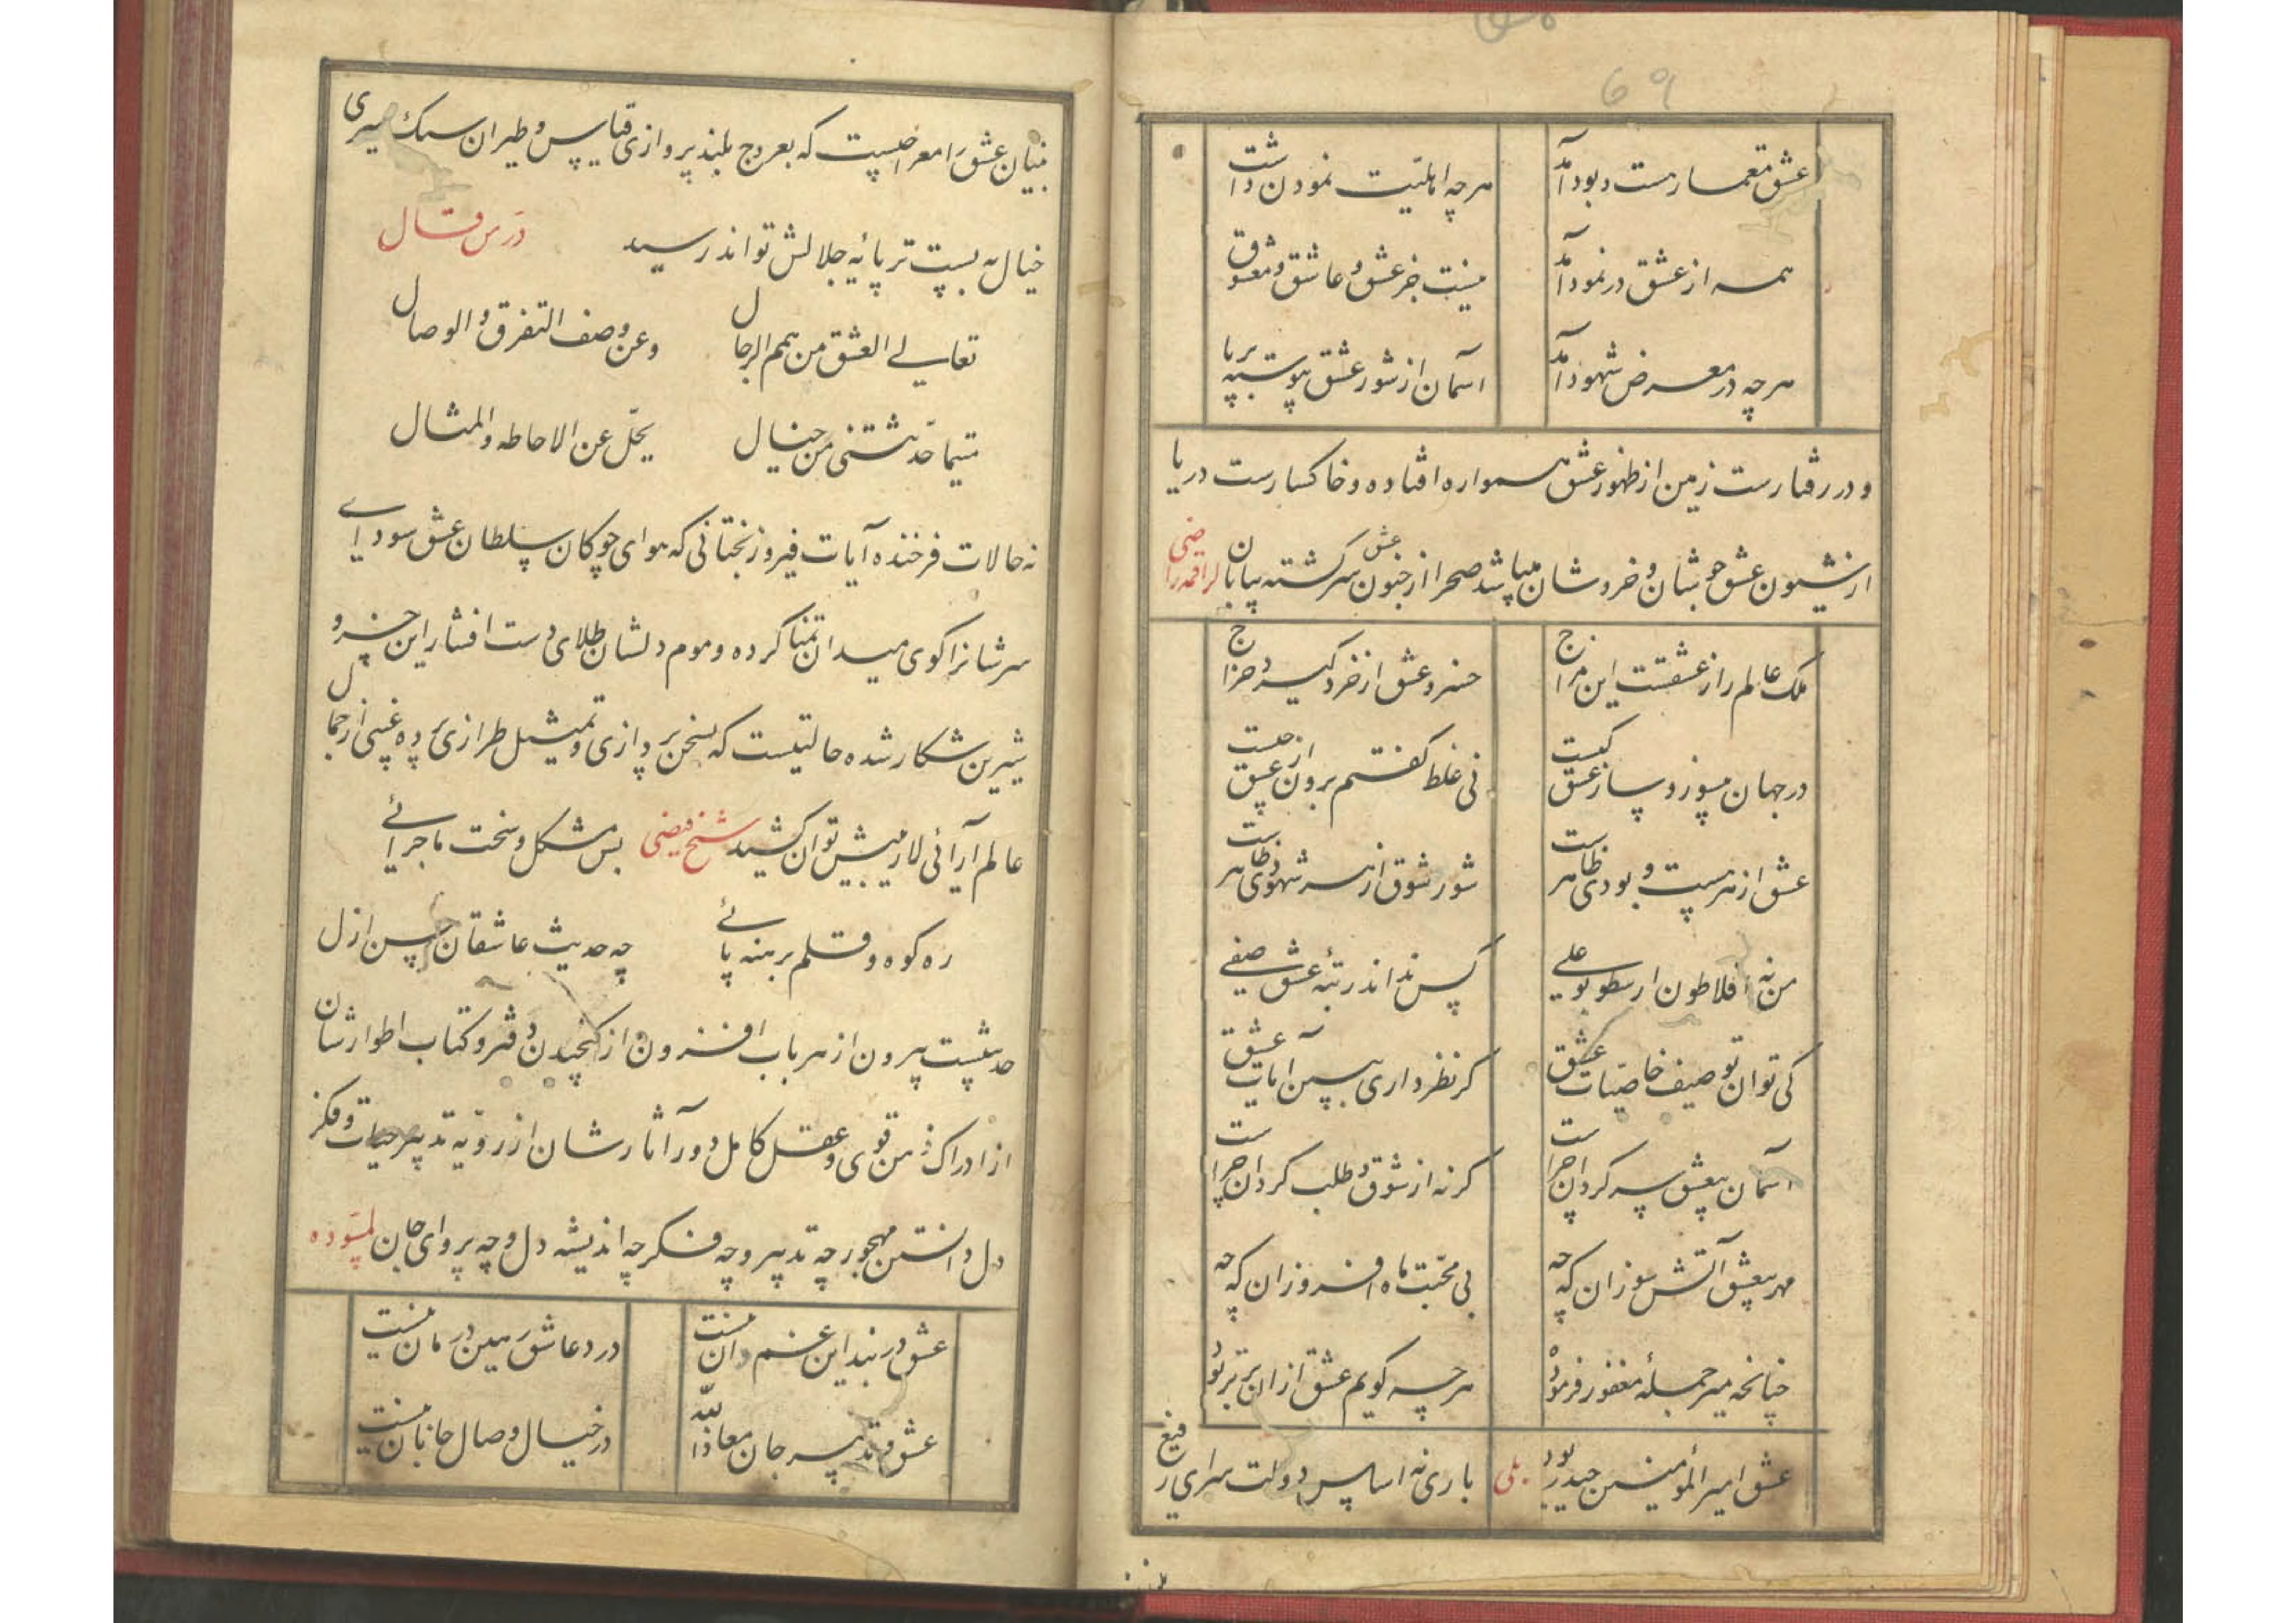 69
عشق معمار هست و بود آمد
هرچه اهلیّت نمودن داشت
همه از عشق در نمود آمد
نیست جز عشق و عاشق و معشوق
هرچه در معرض شهود آمد
آسمان از شور عشق پیوسته برپا
و در رفتارست زمین از ظهور عشق همواره افتاده و خاکسارست دریا
از شیون عشق جوشان و خروشان میباشد صحرا از جنون عشق سرگشته بیابان لراقمه راضی
ملک عالم را ز عشقست این مزاج
خسرو عشق از خرد گیرد خراج
در جهان سوز و ساز عشق کیست
نی غلط گفتم برون از عشق چیست
عشق از هر هست و بودی ظاهرست
شور شوق از هر شهودی ظاهرست
من نه افلاطون ارسطو بوعلی
کس نداند رتبهٔ عشق صفی
کی توان توصیف خاصیّات عشق
گر نظر داری ببین آیات عشق
آسمان بیعشق سرگردان چراست
گرنه از شوق و طلب گردان چراست
مهر بیعشق آتش سوزان که چه
بی محبّت ماه افروزان که چه
چنانچه میر جمله مغفور فرموده
هرچه گویم عشق از آن برتر بود
عشق امیرالمؤمنین حیدر بود
بلی
باری نه اساس دولت سرای رفیع
بنیان عشق را معراجیست که بعروج بلندپروازی قیاس و طیران سبک سیری
خیال به پست تر پایهٔ جلالش تواند رسید
در من قال
تعالی العشق من همم الرجال
وعن وصف التفرق والوصال
متیما حدّشتنی من خیال
یجلّ عن الاحاطه والمثال
نه حالات فرخنده آیات فیروزبختانی که هوای چوگان سلطان عشق سودای
سرشانرا گوی میدان تمنا کرده و موم دلشان طلای دست افشار این خسرو
شیرین شکار شده حالتیست که بسخن پردازی و تمثیل طرازی پرده غیبی از جمال
عالم آرائی لاریبش توان کشید
شیخ فیضی
بس مشکل و سخت ماجرائے
ره کوه و قلم برهنه پائے
چه حدیث عاشقان حسن ازل
حدیثیست بیرون از هر باب افزون از گنجیدن دفتر و کتاب اطوارشان
از ادراک ذهن قوی و عقل کامل دور آثارشان از رویهٔ تدبیر حیات و فکر
دل دانستن مهجور چه تدبیر و چه فکر چه اندیشه دل و چه پروای جان لمسوّده
عشق در بند این غم و آن نیست
درد عاشق رهین درمان نیست
عشق و تدبیر جان معاذالله
در خیال وصال جانان نیست